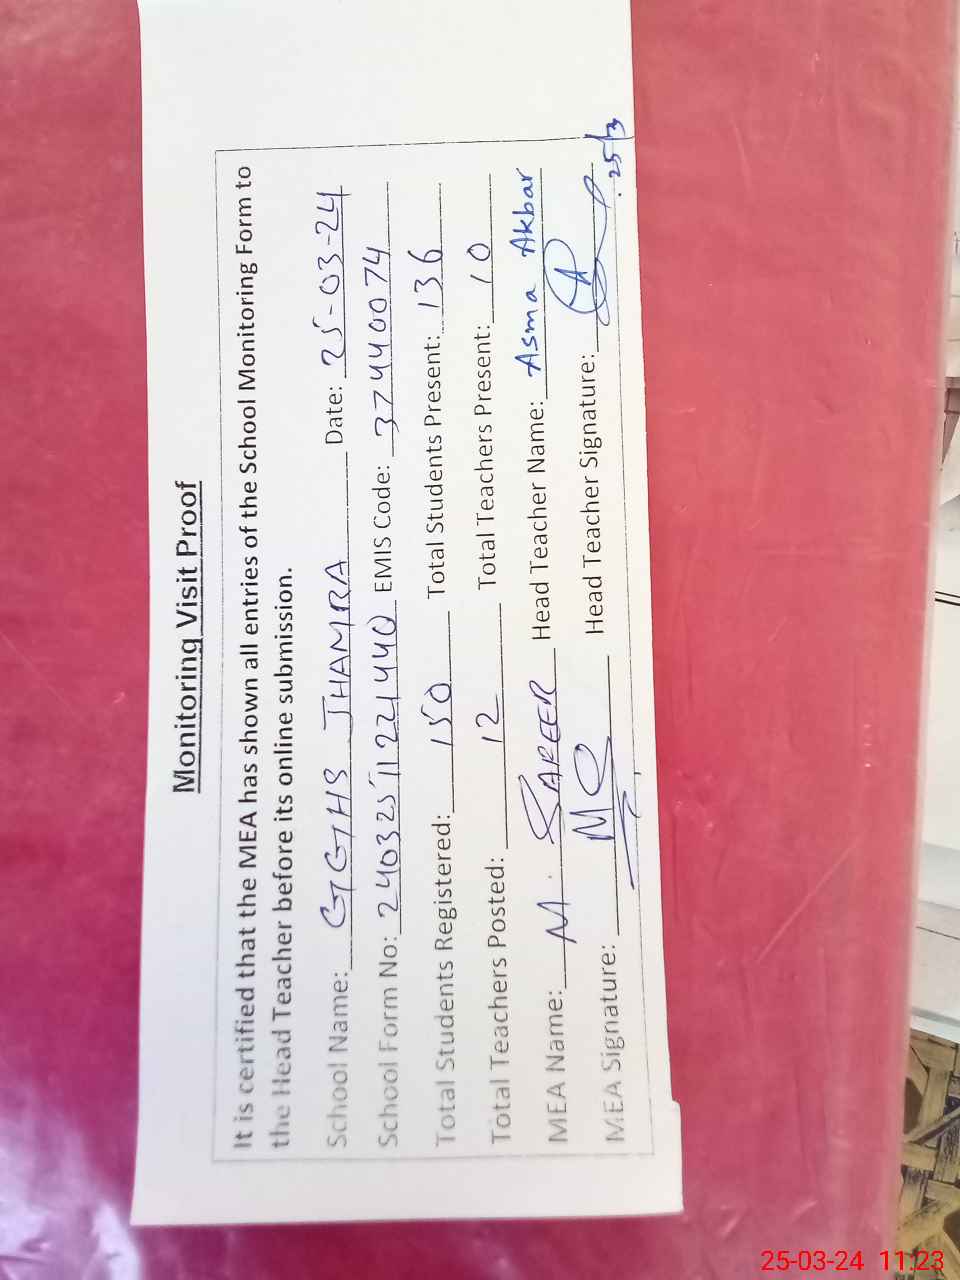 Monitoring Visit Proof
It is certified that the MEA has shown all entries of the School Monitoring Form to
the Head Teacher before its online submission.
School Name: GGHS JHAMRA Date: 25-03-24
School Form No: 24032511221440 EMIS Code: 37440074
Total Students Registered: 150 Total Students Present: 136
Total Teachers Posted: 12 Total Teachers Present: 10
MEA Name: M. SAFEER Head Teacher Name: Asma Akbar
MEA Signature: Head Teacher Signature:
25/3
25-03-24 11:23